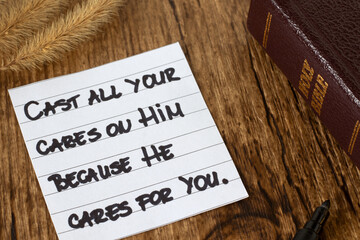 Cast all your
cares on Him
because He
cares for you.
HOLY
BIBLE